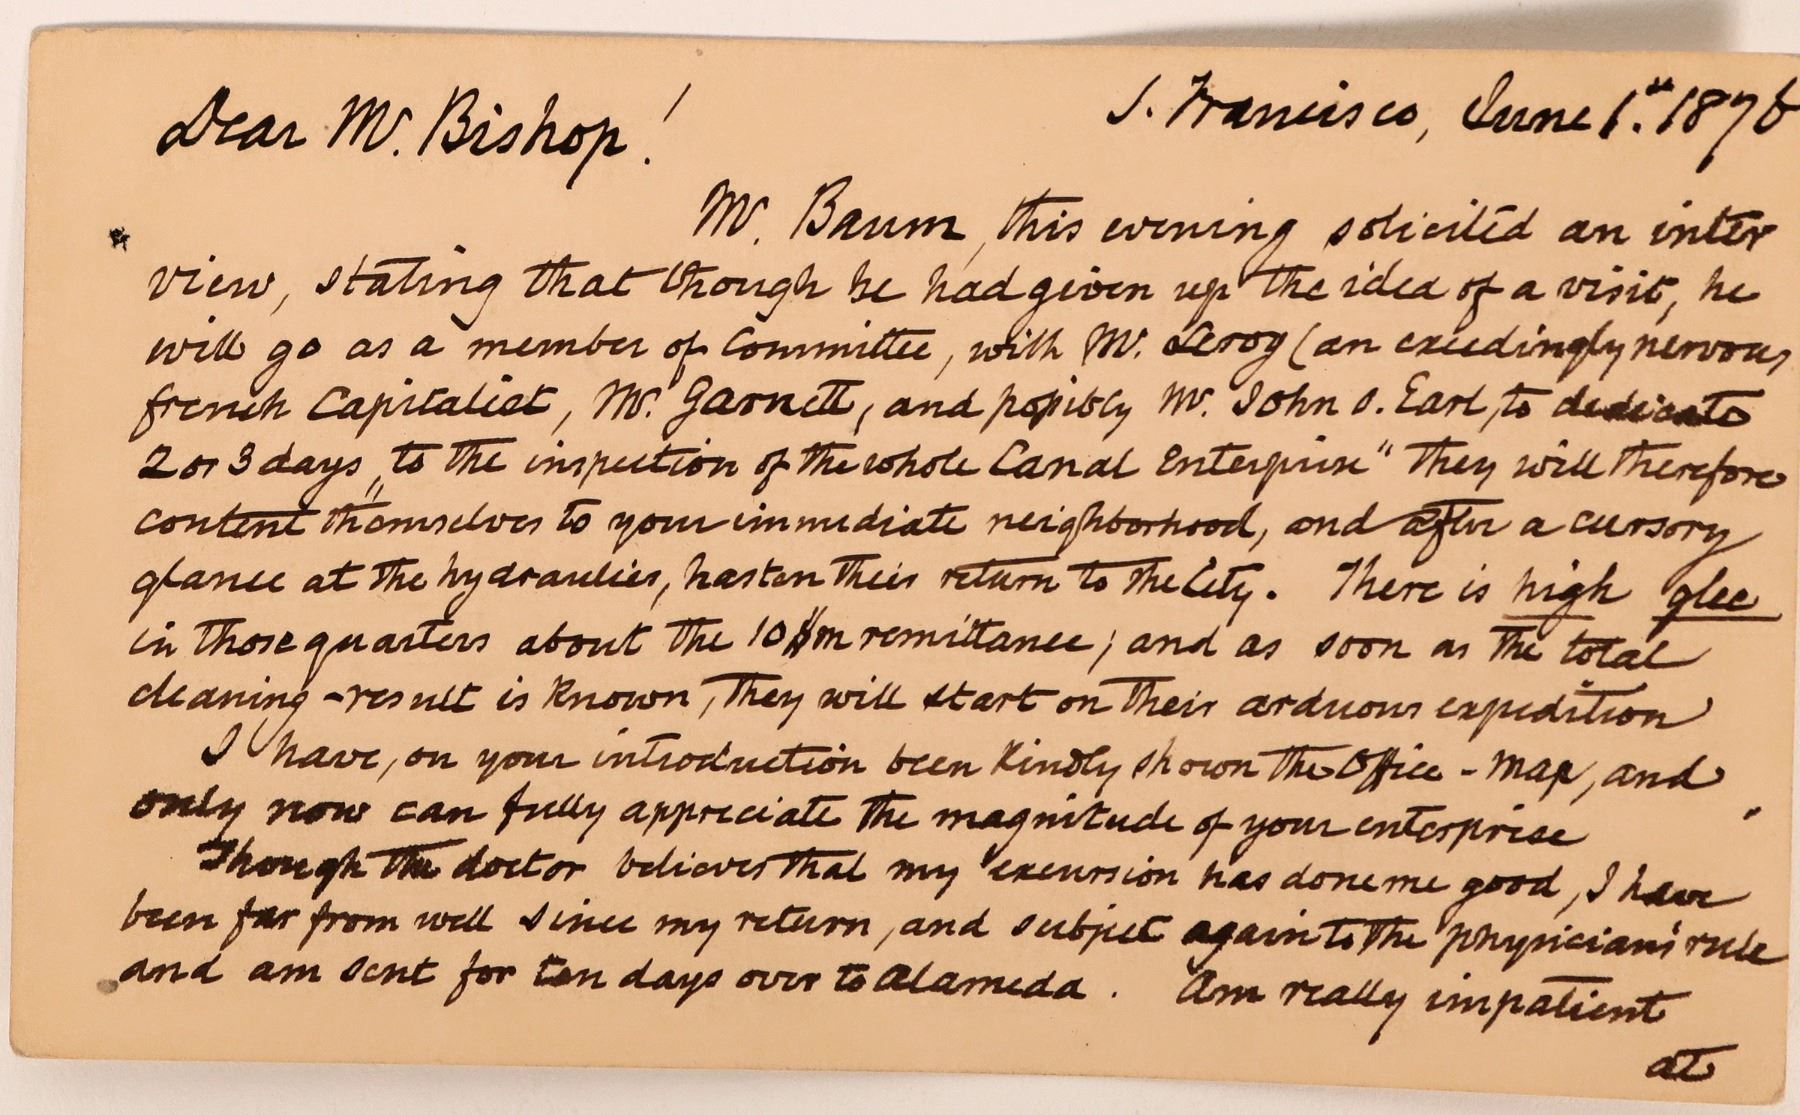 Dear Mr. Bishop!
S. Francisco, June 1.st 1876
Mr. Baum, this evening solicited an inter
view, stating that though he had given up the idea of a visit, he
will go as a member of Committee, with Mr. Leroy (an exeedingly nervous
french Capitalist, Mr. Garnett, and possibly Mr. John O. Earl, to dedicate
2 or 3 days "to the inspection of the whole Canal Enterprise" They will therefore
content themselves to your immediate neighborhood, and after a cursory
glance at the hydraulics, hasten their return to the City. There is high glee
in those quarters about the 10 $m remittance; and as soon as the total
cleaning-result is known, they will start on their arduous expedition
I have, on your introduction been kindly shown the Office-Map, and
only now can fully appreciate the magnitude of your enterprise
Though the doctor believes that my excursion has done me good, I have
been far from well since my return, and subject again to the physicians' rule
and am sent for ten days over to Alameda. Am really impatient
at